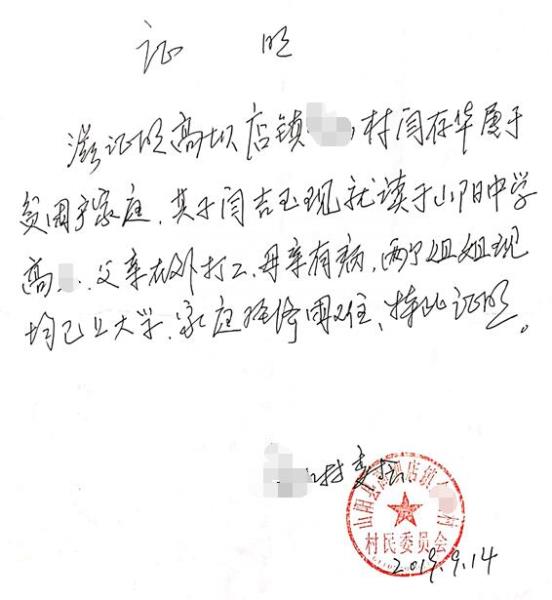 证 明
兹证明高坝店镇村闫存华属于
贫困户家庭,其子闫吉玉现就读于山阳中学
高、父亲在外打工,母亲有病,两个姐姐现
均已上大学,家庭经济困难、特此证明。
村委会
山阳县高坝店镇村
村民委员会
2019.9.14